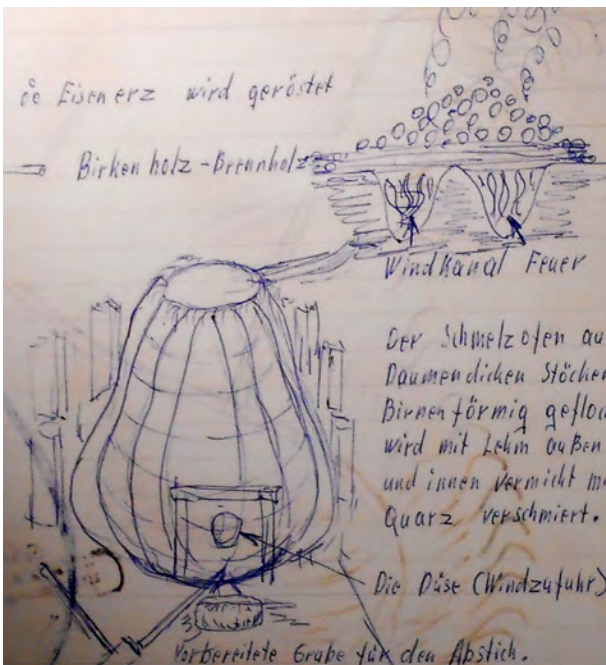 Eisenerz wird geröstet
Birkenholz - Brennholz
Windkanal Feuer
Der Schmelzofen au
Daumendicken Stöcken
Birnenförmig gefloc
wird mit Lehm außen
und innen vermicht m
Quarz verschmiert.
Die Düse (Windzufuhr)
Vorbereitete Grube für den Abstich.